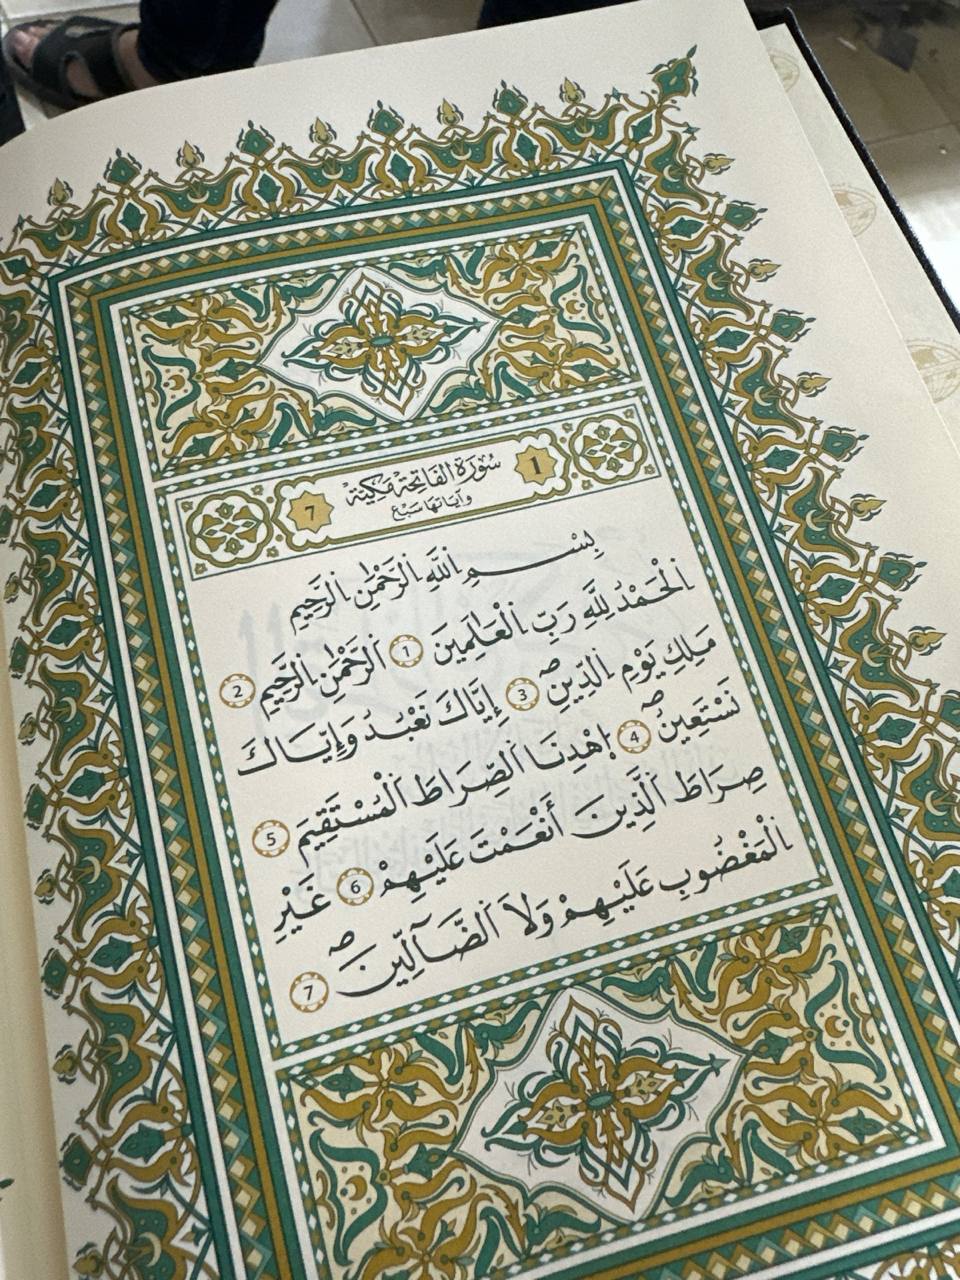 1 سُورَةُ الْفَاتِحَةِ مَكِّيَّة 7
وَآيَاتُهَا سَبْع
بِسْمِ اِ۬للَّهِ اِ۬لرَّحْمَٰنِ اِ۬لرَّحِيمِ
اَ۬لْحَمْدُ لِلَّهِ رَبِّ اِ۬لْعَٰلَمِينَ 1 اَ۬لرَّحْمَٰنِ اِ۬لرَّحِيمِ 2
مَلِكِ يَوْمِ اِ۬لدِّينِۖ 3 إِيَّاكَ نَعْبُدُ وَإِيَّاكَ
نَسْتَعِينُۖ 4 اُ۪هْدِنَا اَ۬لصِّرَاطَ اَ۬لْمُسْتَقِيمَ 5
صِرَاطَ اَ۬لذِينَ أَنْعَمْتَ عَلَيْهِمْ 6 غَيْرِ
اِ۬لْمَغْضُوبِ عَلَيْهِمْ وَلَا اَ۬لضَّآلِّينَۖ 7